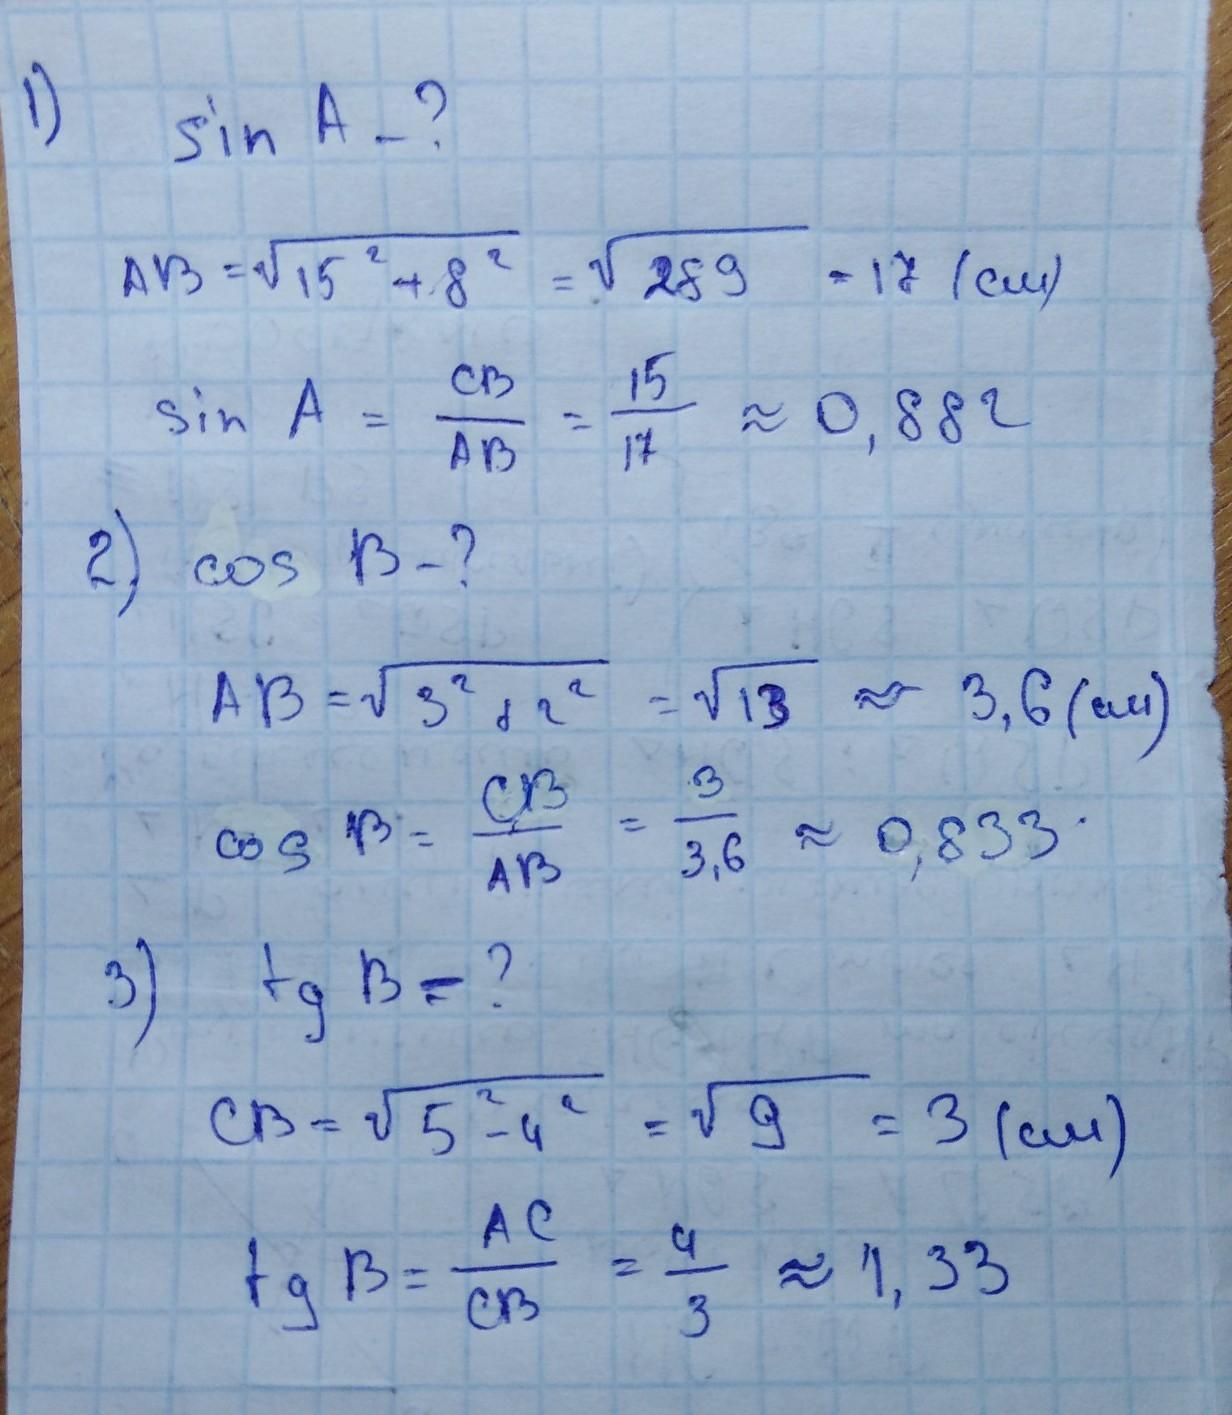 1) sin A - ?
AB = √15² + 8² = √289 = 17 (см)
sin A = CB/AB = 15/17 ≈ 0,882
2) cos B - ?
AB = √3² + 2² = √13 ≈ 3,6 (см)
cos B = CB/AB = 3/3,6 ≈ 0,833
3) tg B = ?
CB = √5² - 4² = √9 = 3 (см)
tg B = AC/CB = 4/3 ≈ 1,33